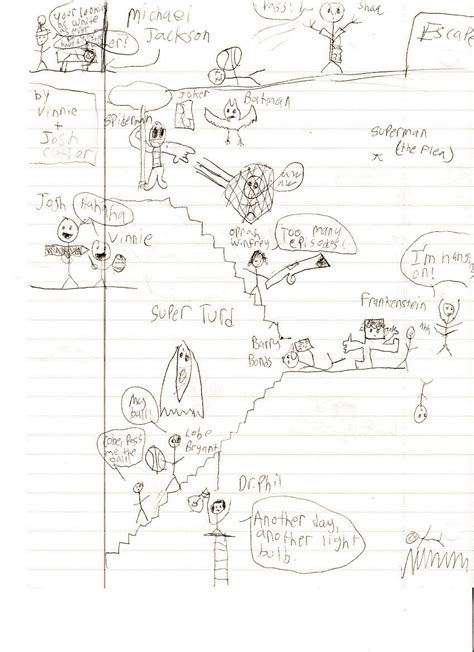 Michael
Jackson
Pass!
Shaq
Escape
by
Vinnie
+
Josh
Joker
Batman
Spiderman
Superman
(the Flea)
Josh
Hahaha
Vinnie
Oprah
Winfrey
Too many
episodes!
I'm hang
on!
Frankenstein
Super Turd
Barry
Bonds
My
ball!
Kobe, Pass
me the
ball!
Kobe
Bryant
Dr. Phil
Another day,
another light
bulb.